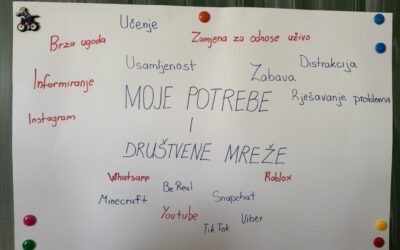 Učenje
Brza ugoda
Zamjena za odnose uživo
Usamljenost
Distrakcija
Zabava
Informiranje
MOJE POTREBE
Rješavanje problema
Instagram
I
DRUŠTVENE MREŽE
Whatsapp
BeReal
Roblox
Minecraft
Snapchat
Youtube
Viber
TikTok